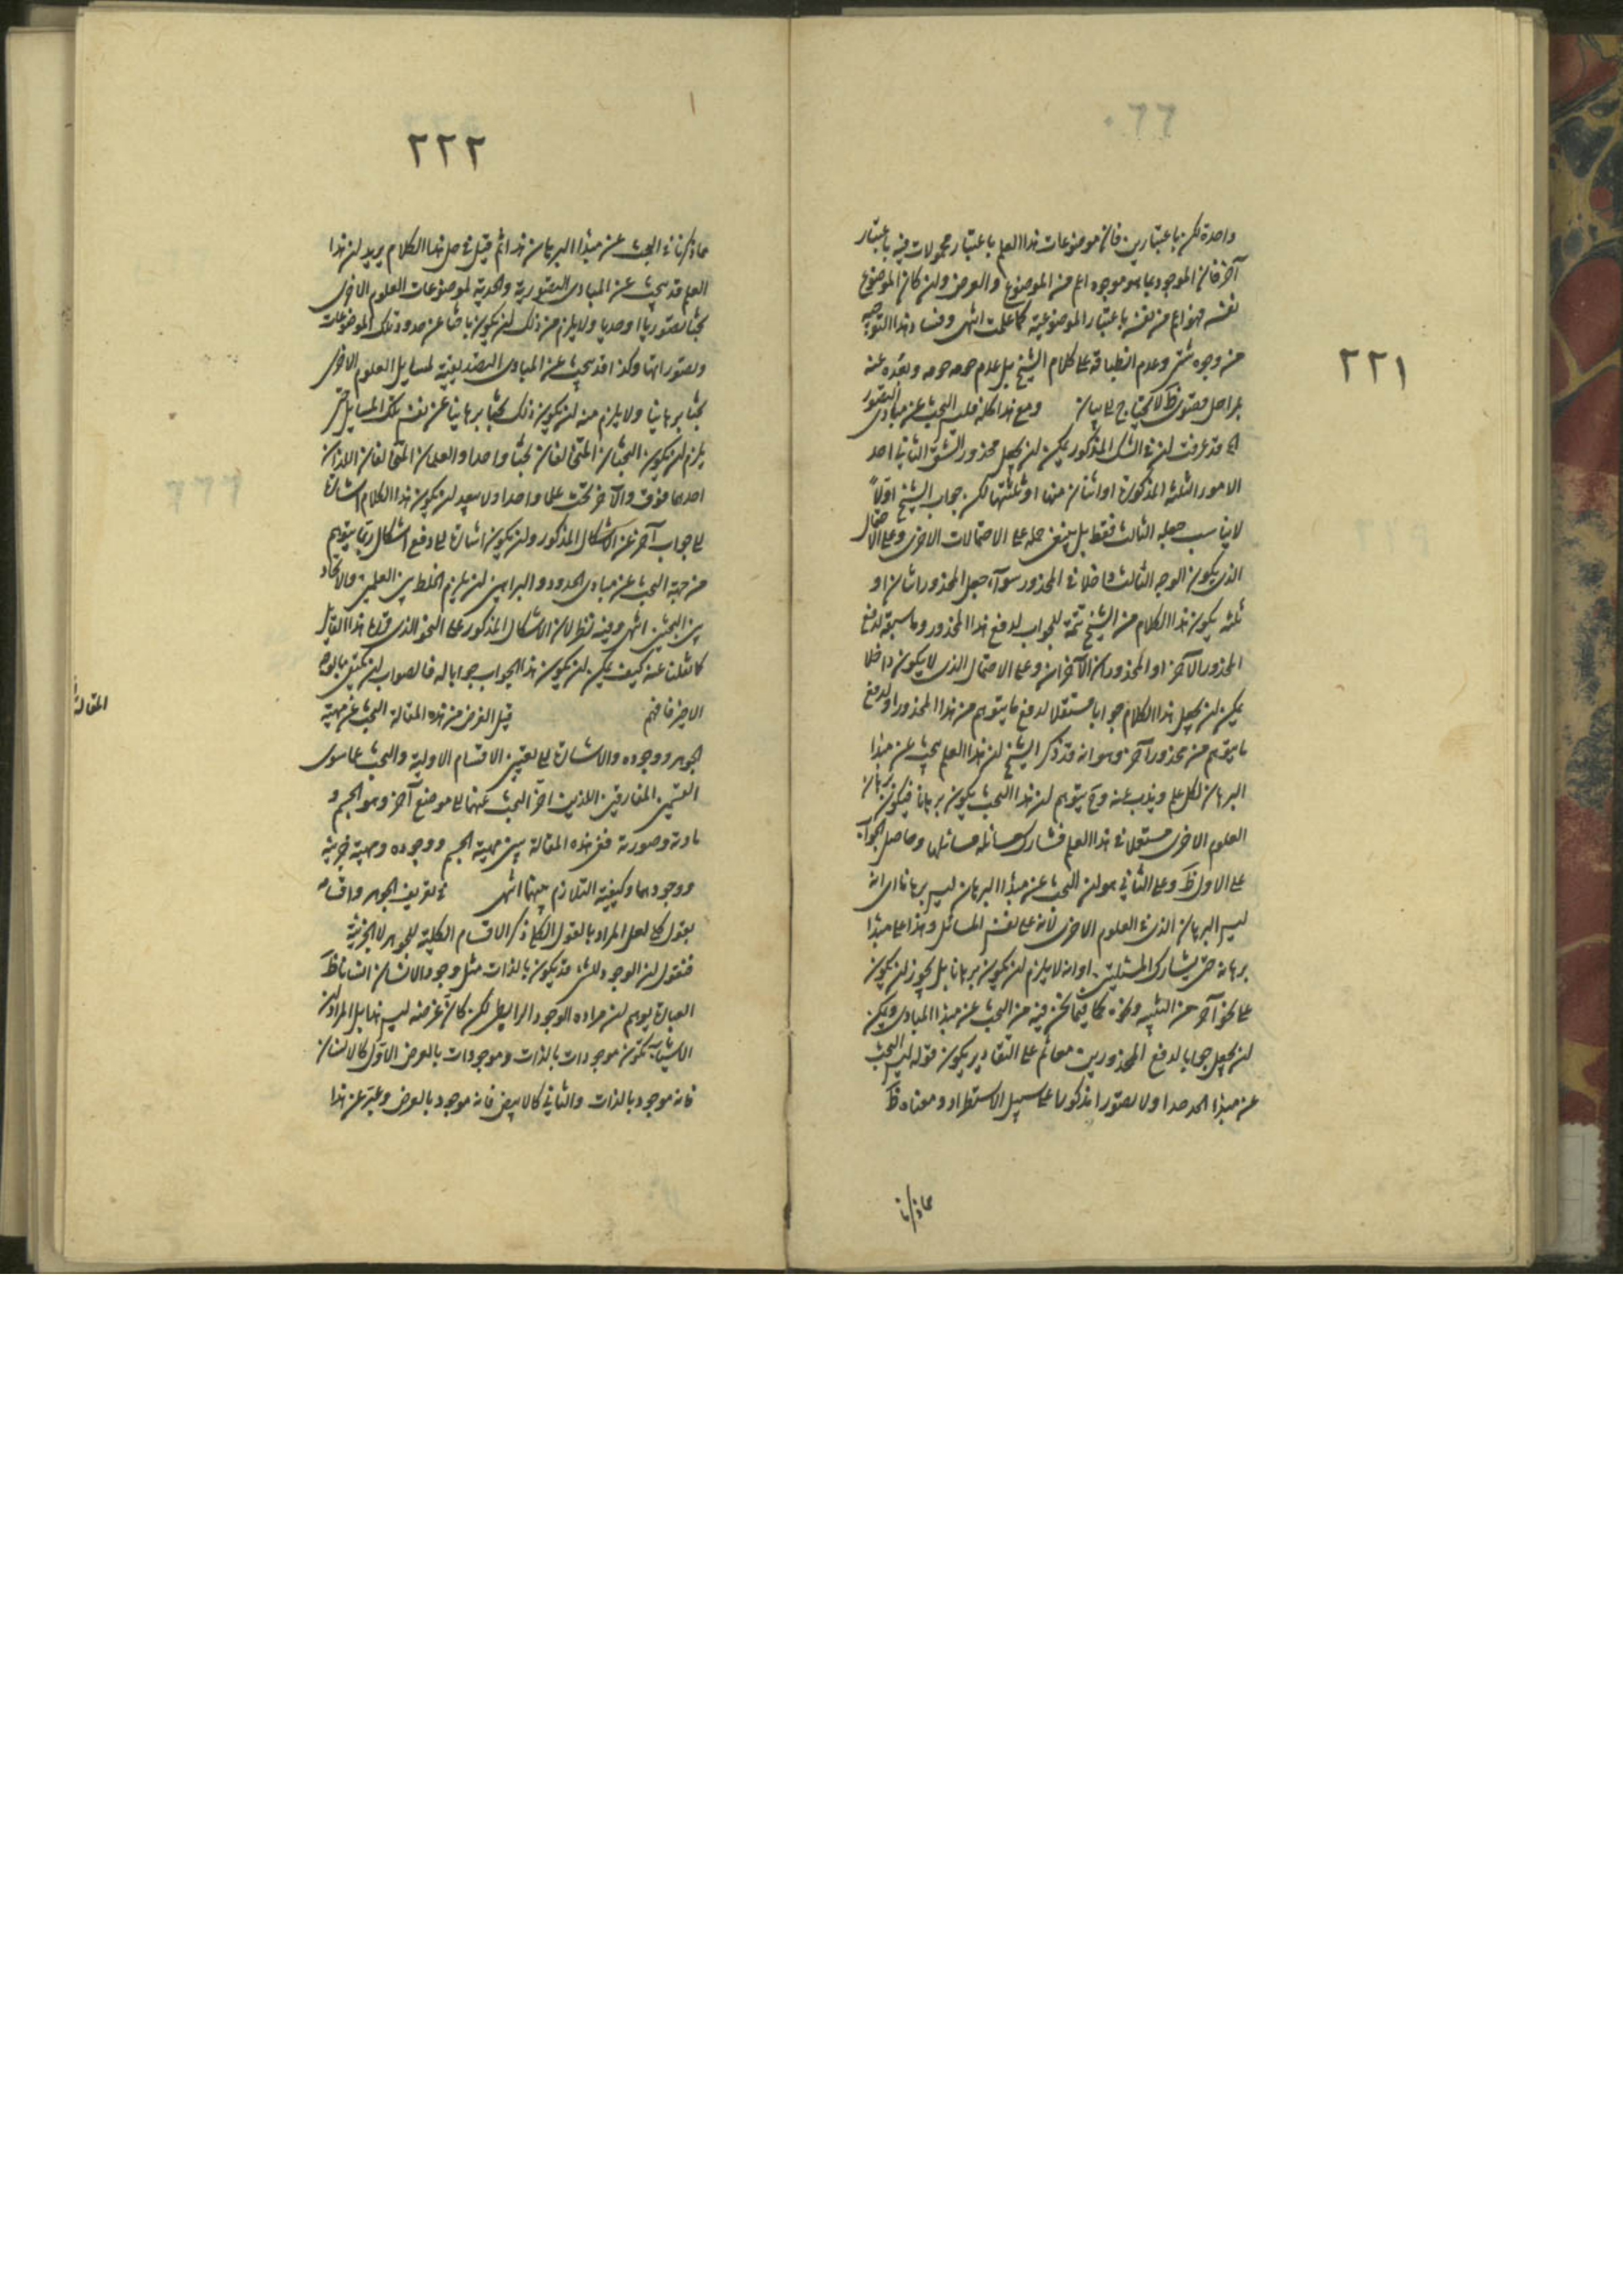 ٢٢١
واحدة لكن باعتبارين فان موضوعات هذا العلم باعتبار محمولات فيه باعتبار
آخر فان الموجود بما هو موجود اعم من الموضوع والعرض ولن كان الموضوع
نفسه فهو اعم من نفسه باعتبار الموضوعية كما علمت انتهى وفساد هذا التوجيه
من وجوه شتى وعدم انطباقه على كلام الشيخ بل عدم وبعده عنه
بمراحل قصوى ظ لا يحتاج الى بيان ومع هذا كله فليس البحث عن مبادى التصور
الخ قد عرفت لن فى الشك المذكور يمكن لن يجعل محذور الشق الثانى احد
الامور الثلثة المذكورة او اثنان منها او ثلثتها لكن جواب الشيخ اولاً
لا يناسب جعله الثالث فقط بل ينبغى حمله على الاحتمالات الاخرى وعلى الاحتمال
الذى يكون الوجه الثالث داخلا فى المحذور سوآء جعل المحذور اثنان او
ثلثه يكون هذا الكلام من الشيخ تتمة للجواب لدفع هذا المحذور وما سبقه لدفع
المحذور الآخر او المحذوران الآخران وعلى الاحتمال الذى لا يكون داخلا
يمكن لن يجعل هذا الكلام جوابا مستقلا لدفع ما يتوهم من هذا المحذور او لدفع
ما يتوهم من محذور آخر وهو انه قد ذكر الشيخ لن هذا العلم يبحث عن مبدا
البرهان لكل علم ويذب عنه وح يتوهم لن هذا البحث يكون برهانا فيكون برهان
العلوم الاخرى مستعملا فى هذا العلم فشارك مسائله مسائلها وحاصل الجواب
على الاول ظ وعلى الثانى هو لن البحث عن مبدا البرهان ليس برهانا اى انه
ليس البرهان الذى فى العلوم الاخرى لانه على نفس المسائل وهذا على مبدا
برهانه حتى يشارك المسئلتين او انه لا يلزم لن يكون برهانا بل يجوز لن يكون
على نحو آخر من التنبيه ونحوه كما فيما نحن فيه من البحث عن مبدا المبادى ويمكن
لن يجعل جوابا لدفع المحذورين معا ثم على التقادير يكون قوله ليس البحث
عن مبدا الحد حدا ولا تصورا مذكورا على سبيل الاستطراد ومعناه ظ
مما ذكرنا
٢٢٢
مما ذكرنا فى البحث عن مبدا البرهان هذا ثم قيل فى حل هذا الكلام يريد لن هذا
العلم قد يبحث عن المبادى التصورية والحدية لموضوعات العلوم الاخرى
بحثا تصوريا او حديا ولا يلزم من ذلك لن يكون باحثا عن حدود تلك الموضوعات
وتصوراتها وكذا قد يبحث عن المبادى التصديقية لمسايل العلوم الاخرى
بحثا برهانيا ولا يلزم منه لن يكون ذلك بحثا برهانيا عن نفس تلك المسايل حتى
يلزم لن يكون البحثان المتخالفان بحثا واحدا والعلمان المتخالفان اللذان
احدهما فوق والآخر تحت علما واحدا ولا يبعد لن يكون هذا الكلام اشارة
الى جواب آخر عن الاشكال المذكور ولن يكون اشارة الى دفع اشكال ربما يتوهم
من جهة البحث عن مبادى الحدود والبراهين لن يلزم الخلط بين العلمين والاتحاد
بين البحثين انتهى وفيه نظر لان الاشكال المذكور على النحو الذى قرره هذا القايل
كما نقلنا عنه كيف يمكن لن يكون هذا الجواب جوابا له فالصواب لن يكتفى بالوجه
الاخير فافهم قيل الغرض من هذه المقالة البحث عن مهية
المقالة
الجوهر ووجوده والاشارة الى تعيين الاقسام الاولية والبحث عما سوى
القسمين المفارقين اللذين اخر البحث عنهما الى موضع آخر وهو الجسم و
مادته وصورته ففى هذه المقالة يبين مهية الجسم ووجوده ومهية جزئيه
ووجودهما وكيفية التلازم بينهما انتهى فى تعريف الجوهر واقسامه
بقول كلى لعل المراد بالقول الكلى ذكر الاقسام الكلية للجوهر لا الجزئية
فنقول لن الوجود للشىء قد يكون بالذات مثل وجود الانسان انسانا ظ
العبارة يوهم لن مراده الوجود الرابطى لكن كان غرضه ليس هذا بل المراد لن
الاشياء تكون موجودات بالذات وموجودات بالعرض الاول كالانسان
فانه موجود بالذات والثانى كالابيض فانه موجود بالعرض وعبر عن هذا